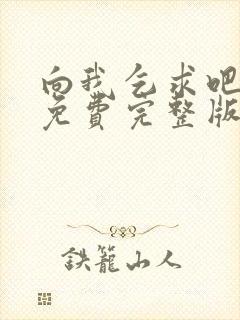 向我乞求吧
免费完整版
鉄籠山人